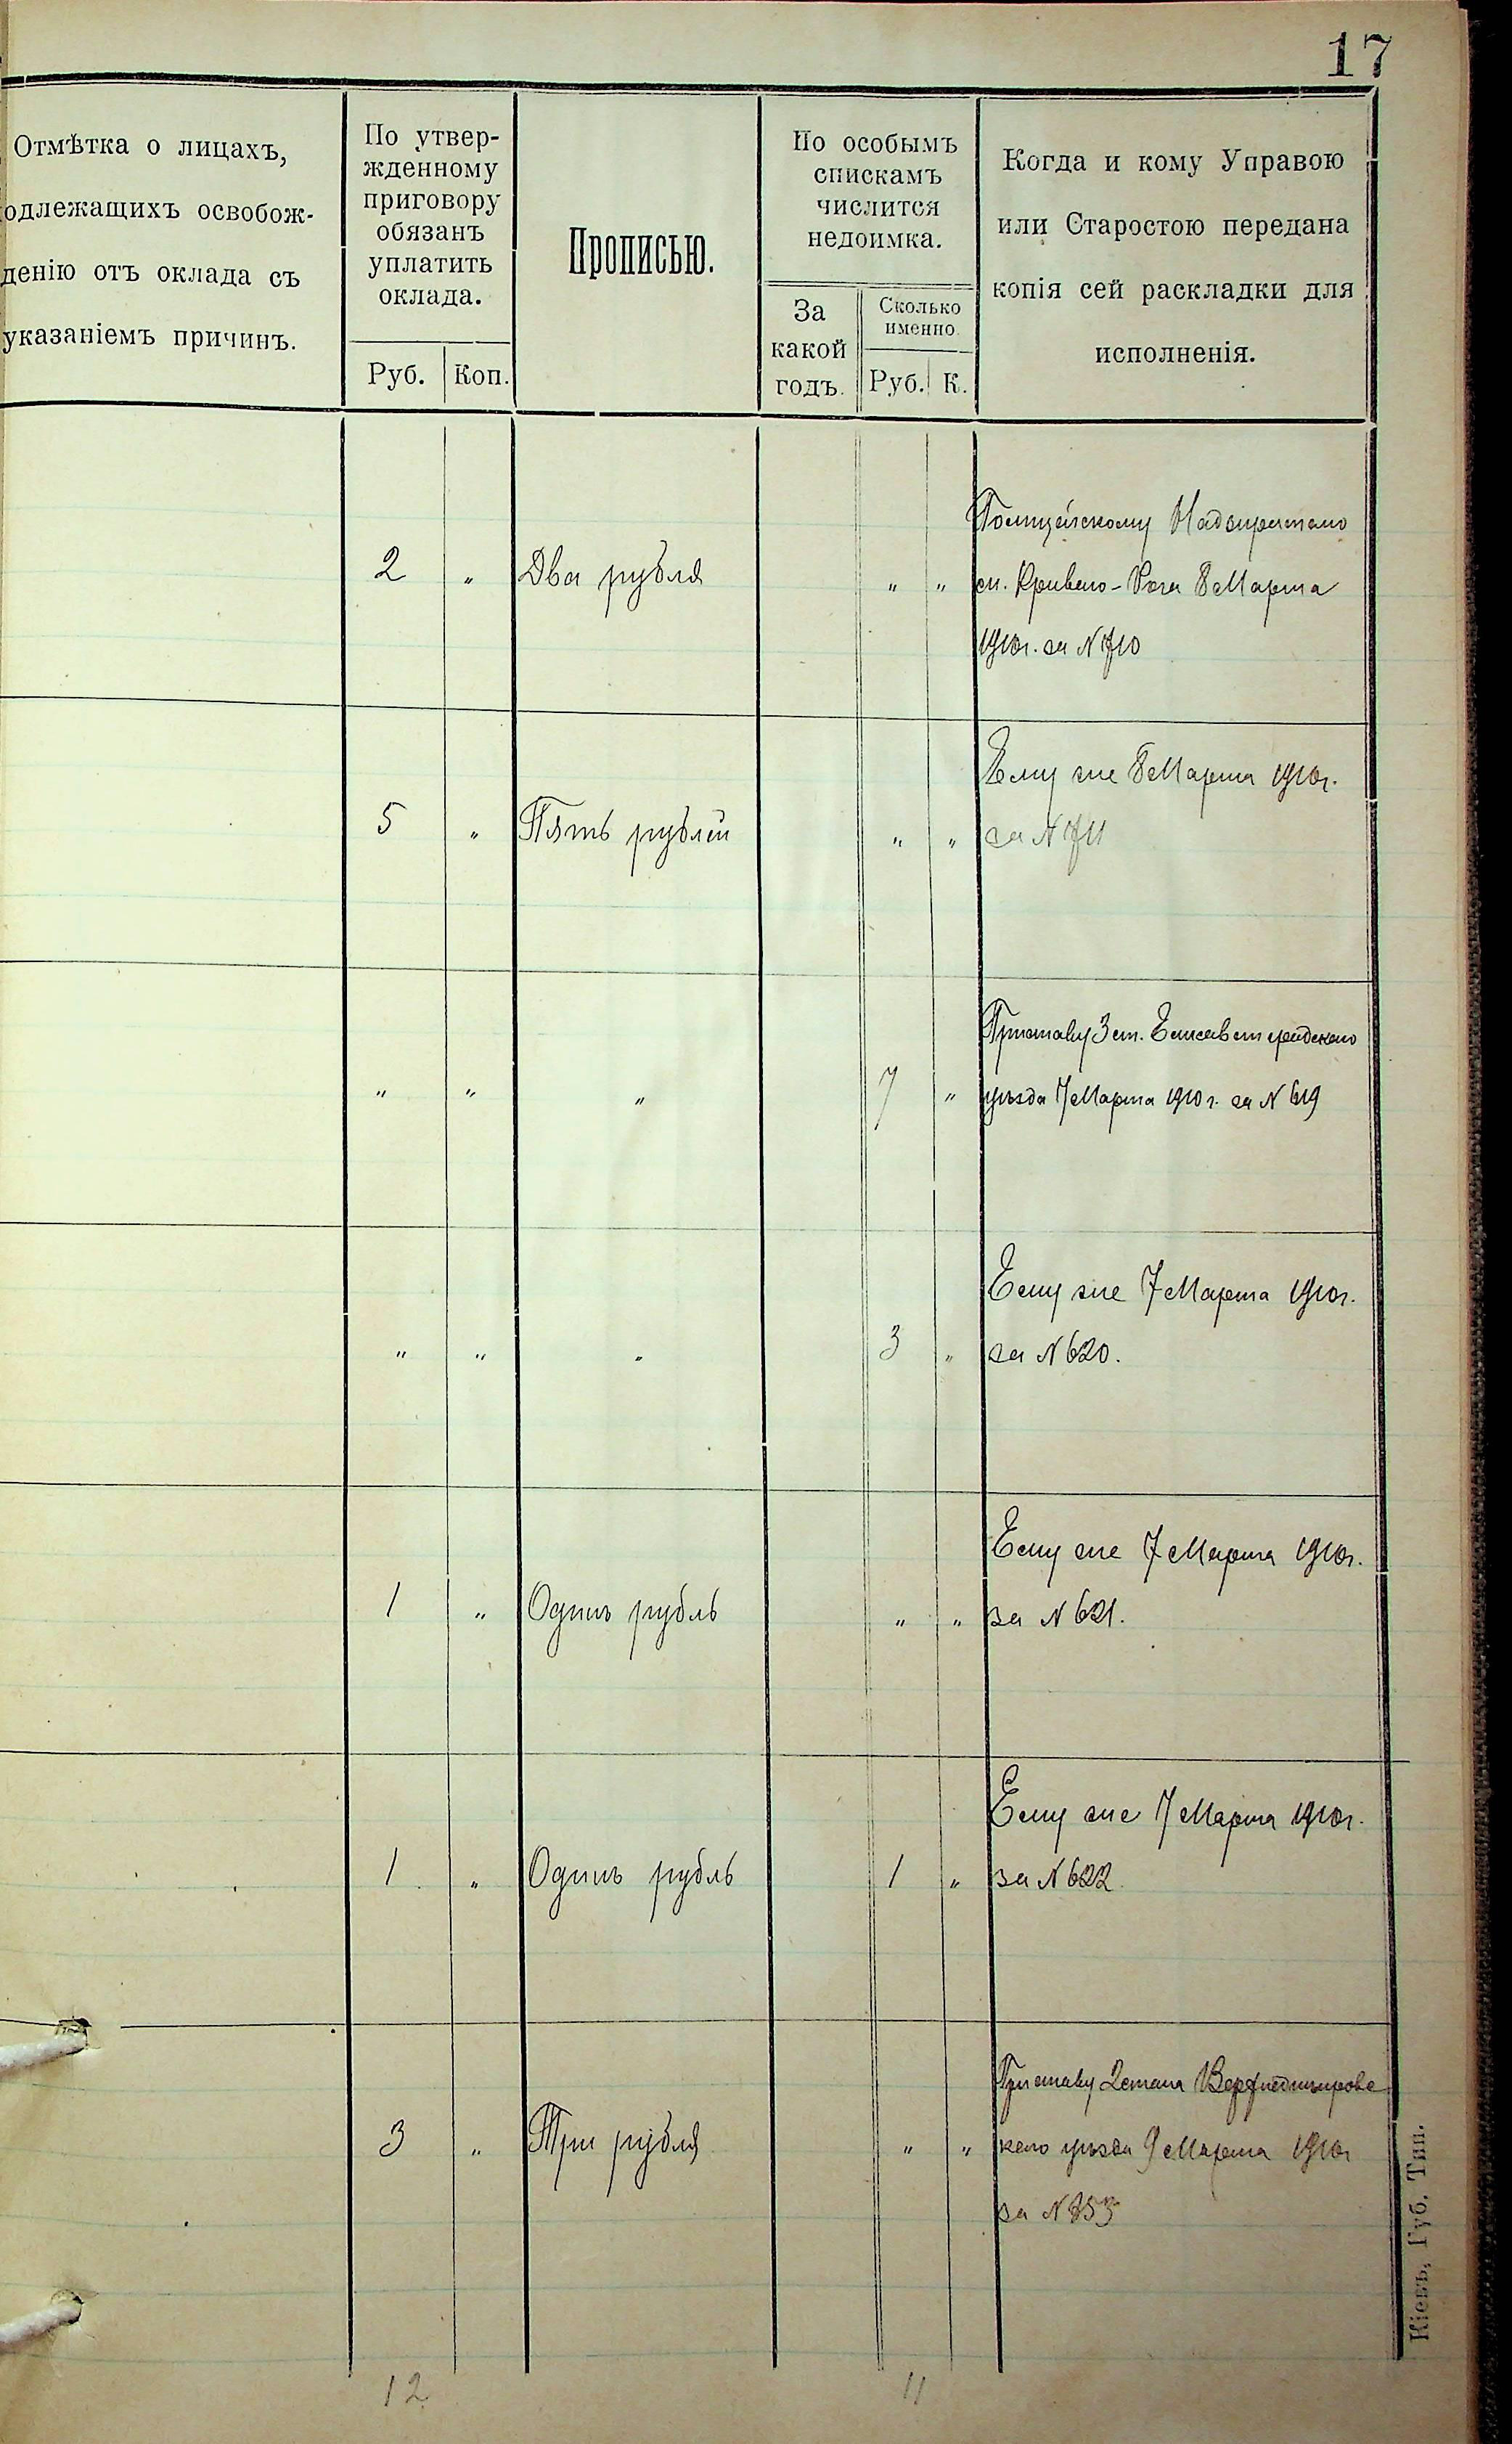 17
Отмѣтка о лицахъ,
одлежащихъ освобож-
денію отъ оклада съ
указаніемъ причинъ.
По утвер-
жденному
приговору
обязанъ
уплатить
оклада.
Руб. Коп.
Прописью.
По особымъ
спискамъ
числится
недоимка.
За
какой
годъ.
Сколько
именно.
Руб. К.
Когда и кому Управою
или Старостою передана
копія сей раскладки для
исполненія.
2 " Два рубля " "
Полицейскому Надзирателю
м. Кривого-Рога 8 Марта
1910г. за N 710
5 " Пять рублей " "
Ему же 8 Марта 1910г.
за N 711
" " " 7 "
Приставу 3 ст. Елисаветградского
уѣзда 7 Марта 1910 г. за N 619
" " " 3 "
Ему же 7 Марта 1910г.
за N 620.
1 " Одинъ рубль " "
Ему же 7 Марта 1910г.
за N 621.
1 " Одинъ рубль 1 "
Ему же 7 Марта 1910г.
за N 622.
3 " Три рубля " "
Приставу 2 стана Верхнеднѣпровс
кого уѣзда 9 Марта 1910г
за N 853
12 11
Кіевъ, Губ. Тип.